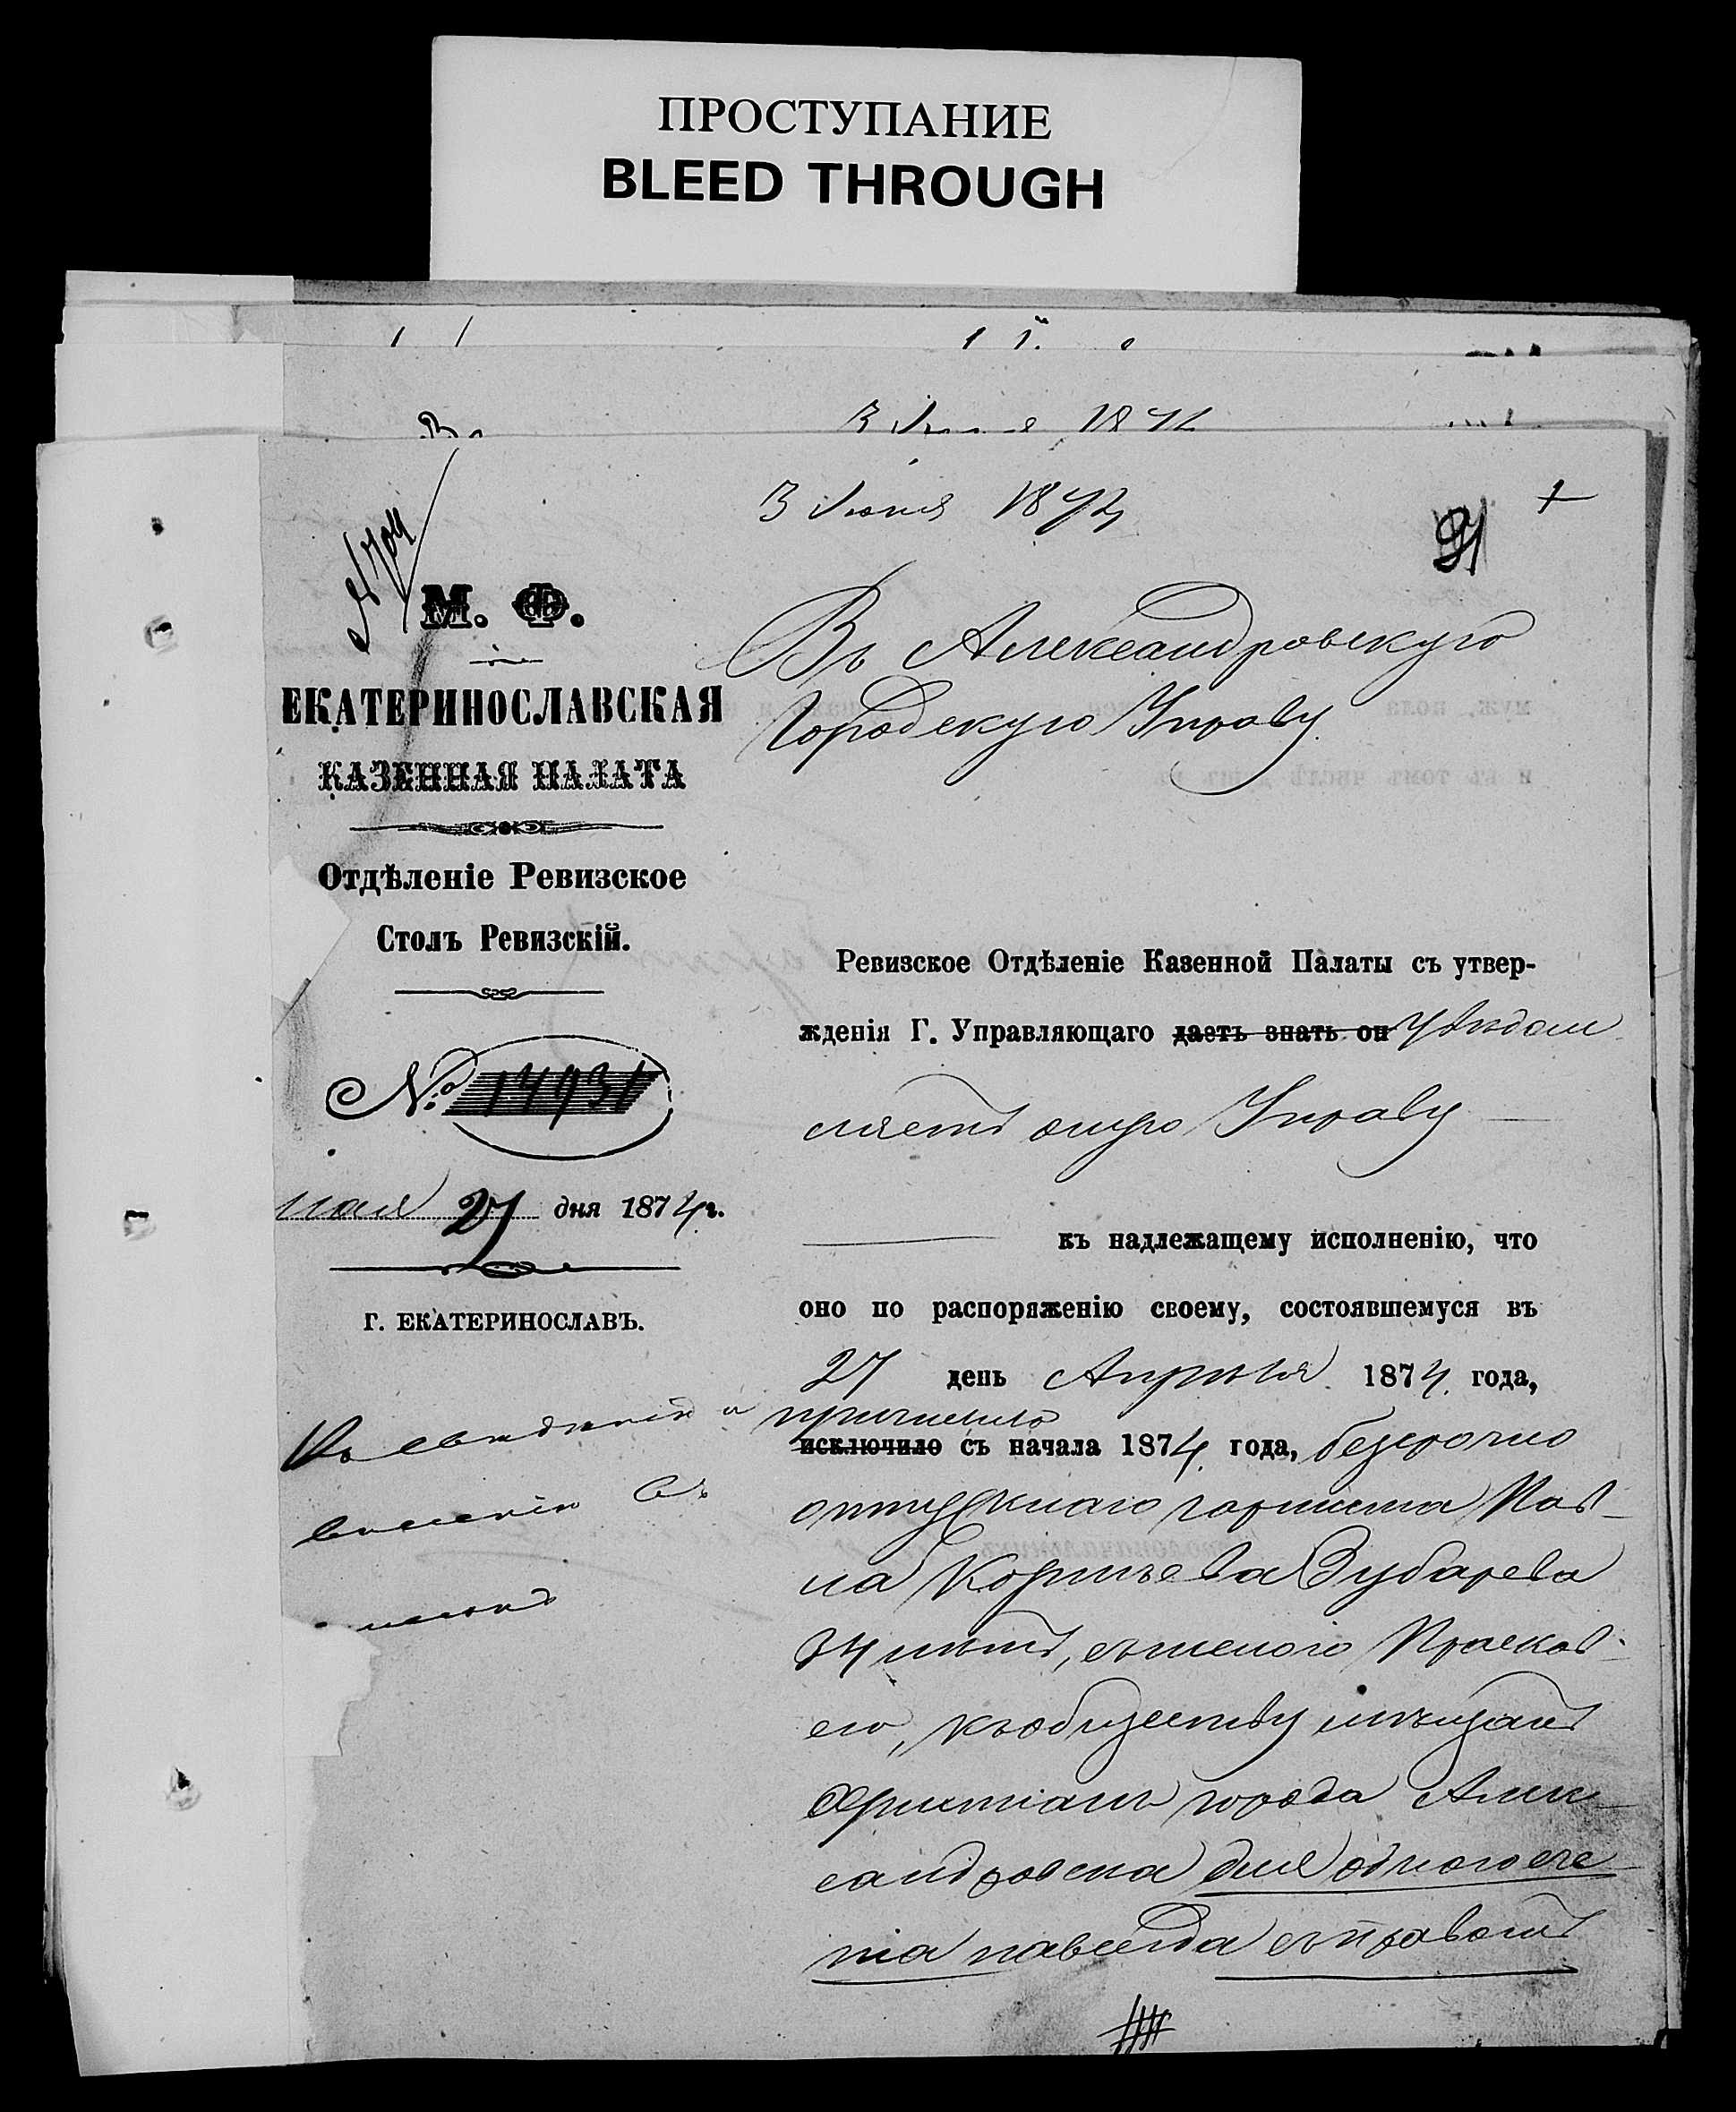 ПРОСТУПАНИЕ
BLEED THROUGH
3 Июня 1874
91
№ 704
М. Ф.
ЕКАТЕРИНОСЛАВСКАЯ
КАЗЕННАЯ ПАЛАТА
Отдѣленіе Ревизское
Столъ Ревизскій.
№ 14931
мая 27 дня 1874 г.
Г. ЕКАТЕРИНОСЛАВЪ.
Къ свѣдѣнію и
внесенію въ
Въ Александровскую
Городскую Управу.
Ревизское Отдѣленіе Казенной Палаты съ утвер-
жденія Г. Управляющаго даетъ знать он увѣдом
ляетъ оную Управу
къ надлежащему исполненію, что
оно по распоряженію своему, состоявшемуся въ
27 день Апрѣля 1874 года,
причислило
исключило съ начала 1874 года, безсрочно
отпускнаго горниста Пав-
ла Корнѣева Зубарева
34 лѣтъ, съ женою Прасков-
ею, къ обществу мѣщанъ
христіанъ города Алек-
сандровска для одного сче-
та навсегда съ правомъ